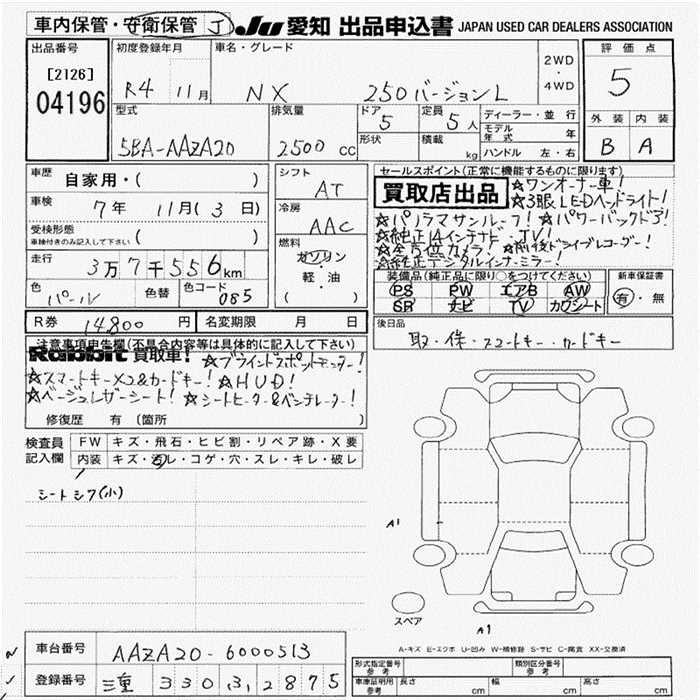 車内保管・守衛保管 J JU 愛知 出品申込書 JAPAN USED CAR DEALERS ASSOCIATION
出品番号 初度登録年月 車名・グレード 2WD・4WD 評価点
[2126]
04196 R4 11月 NX 250バージョンL 5
型式 排気量 ドア 定員 ディーラー・並行 外装 内装
5BA-AAZA20 2500cc 5 5人 モデル年式 年 B A
形状 積載 kg ハンドル 左・右
車歴 自家用・( ) シフト AT セールスポイント(正常に機能するものに限ります)
車検 7年 11月(3日) 冷房 AAC 買取店出品 ☆ワンオーナー車!
☆3眼LEDヘッドライト!
受検形態 車検付きのみ記入して下さい ( ) ☆パノラマサンルーフ! ☆パワーバックドア!
☆純正14インチナビ・TV!
走行 3万7千556km 燃料 ガソリン 軽・油 ( ) ☆全方位カメラ! ☆前後ドライブレコーダー!
☆純正デジタルインナーミラー!
色 パール 色替 色コード 085 装備品(純正品に限り○をつけてください) 新車保証書
PS PW エアB AW 有・無
SR ナビ TV カワシート
R券 14800円 名変期限 月 日 後日品
取・保・スマートキー・カードキー
注意事項申告欄(不具合内容等は具体的に記入して下さい)
Rabbit 買取車! ☆ブラインドスポットモニター!
☆スマートキー×2&カードキー! ☆HUD!
☆ベージュレザーシート! ☆シートヒーター&ベンチレーター!
修復歴 有 〔箇所 〕
検査員記入欄 FW キズ・飛石・ヒビ割・リペア跡・X要
内装 キズ・汚レ・コゲ・穴・スレ・キレ・破レ
シートシワ(小)
A1
スペア
A1
A-キズ E-エクボ U-凹み W-補修跡 S-サビ C-腐食 XX-交換済
車台番号 AAZA20-6000513 形式指定番号 参考 類別区分番号 参考
登録番号 三重 330 ３ 2875 車庫証明用 参考 長さ cm 幅 cm 高さ cm